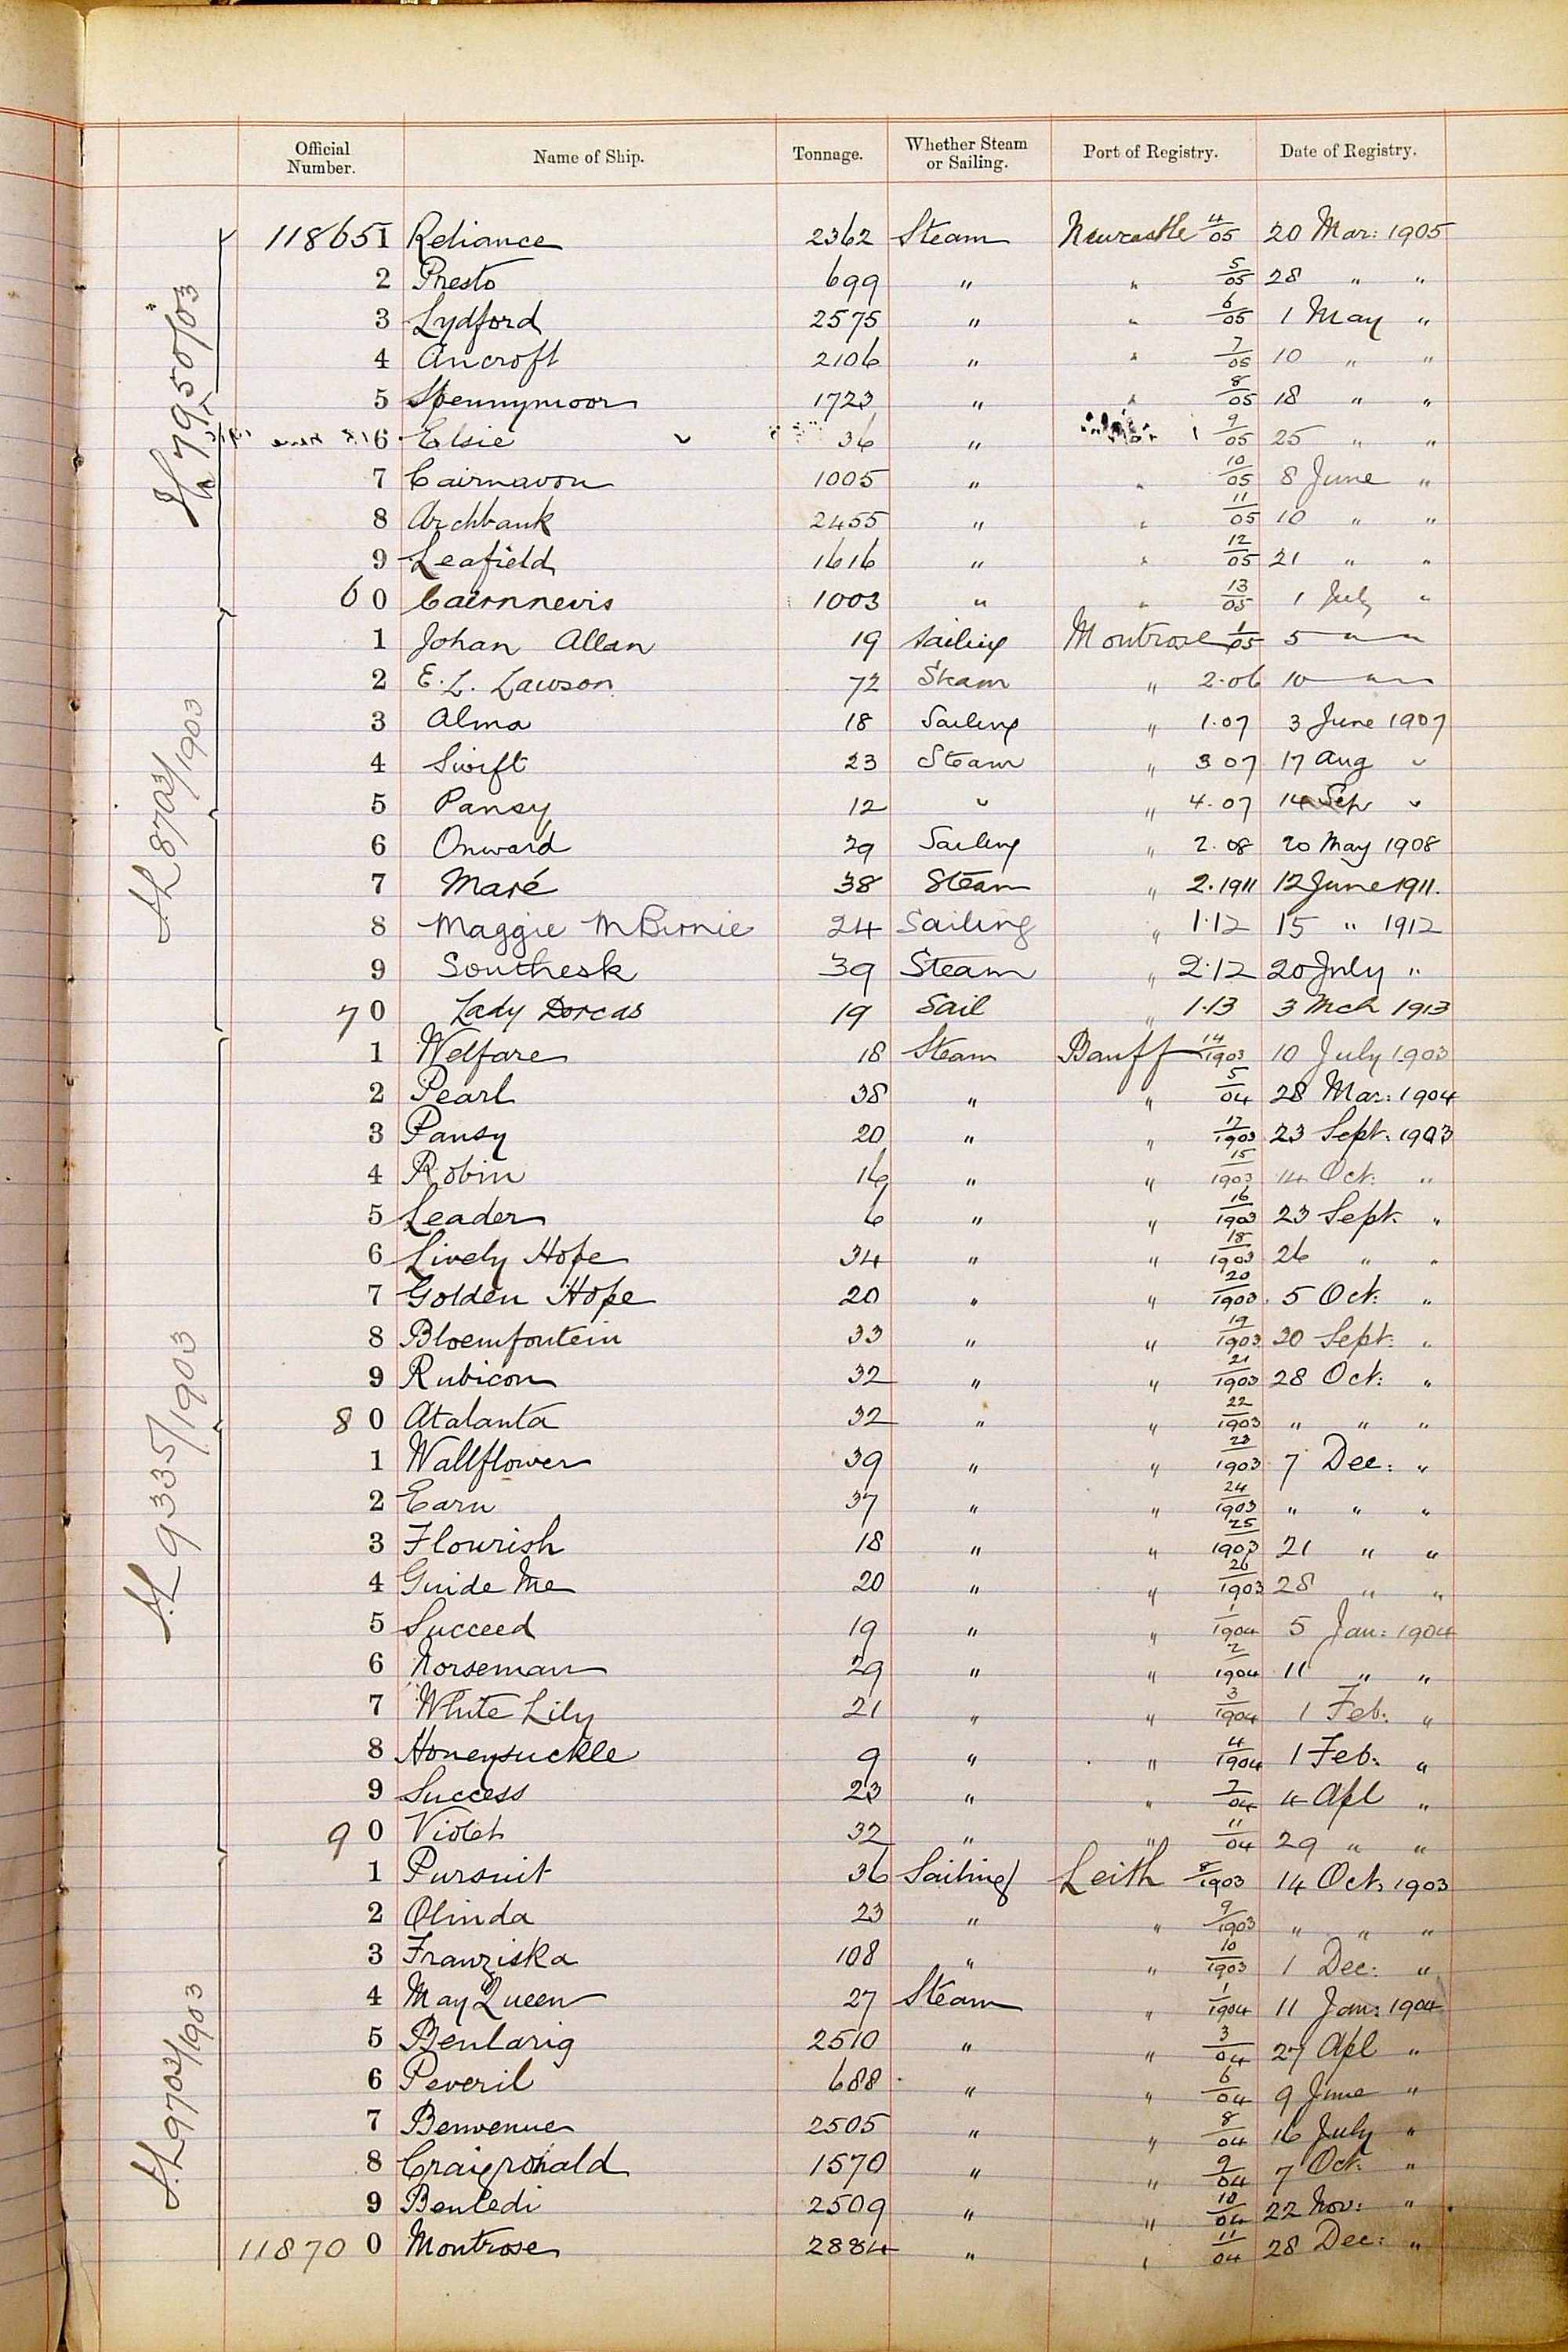 Official Number. Name of Ship. Tonnage. Whether Steam or Sailing. Port of Registry. Date of Registry.
118651 Reliance 2362 Steam Newcastle 4/05 20 Mar: 1905
2 Presto 699 " " 5/05 28 " "
3 Lydford 2575 " " 6/05 1 May "
4 Ancroft 2106 " " 7/05 10 " "
5 Spennymoor 1723 " " 8/05 18 " "
6 Elsie 36 " 9/05 25 " "
7 Cairnavon 1005 " " 10/05 8 June "
8 Archbank 2455 " " 11/05 10 " "
9 Leafield 1616 " " 12/05 21 " "
60 Cairnnevis 1003 " " 13/05 1 July "
1 Johan Allan 19 Sailing Montrose 1/05 5 " "
2 E. L. Lawson 72 Steam " 2.06 10 " "
3 Alma 18 Sailing " 1.07 3 June 1907
4 Swift 23 Steam " 3 07 17 Aug "
5 Pansy 12 " " 4.07 14 Sep "
6 Onward 29 Sailing " 2.08 20 May 1908
7 Maré 38 Steam " 2.1911 12 June 1911.
8 Maggie McBirnie 24 Sailing " 1.12 15 " 1912
9 Southesk 39 Steam " 2.12 20 July "
70 Lady Dorcas 19 Sail " 1.13 3 Mch 1913
1 Welfare 18 Steam Banff 14/1903 10 July 1903
2 Pearl 38 " " 5/04 28 Mar: 1904
3 Pansy 20 " " 17/1903 23 Sept: 1903
4 Robin 16 " " 15/1903 14 Oct: "
5 Leader 6 " " 16/1903 23 Sept. "
6 Lively Hope 34 " " 18/1903 26 " "
7 Golden Hope 20 " " 20/1903 5 Oct: "
8 Bloemfontein 33 " " 19/1903 30 Sept: "
9 Rubicon 32 " " 21/1903 28 Oct: "
80 Atalanta 32 " " 22/1903 " " "
1 Wallflower 39 " " 23/1903 7 Dec: "
2 Earn 37 " " 24/1903 " " "
3 Flourish 18 " " 25/1903 21 " "
4 Guide Me 20 " " 26/1903 28 " "
5 Succeed 19 " " 1/1904 5 Jan: 1904
6 Norseman 29 " " 2/1904 11 " "
7 White Lily 21 " " 3/1904 1 Feb: "
8 Honeysuckle 9 " " 4/1904 1 Feb. "
9 Success 23 " " 7/04 4 Apl "
90 Violet 32 " " 11/04 29 " "
1 Pursuit 36 Sailing Leith 8/1903 14 Oct. 1903
2 Olinda 23 " " 9/1903 " " "
3 Franziska 108 " " 10/1903 1 Dec: "
4 May Queen 27 Steam " 1/1904 11 Jan: 1904
5 Benlarig 2510 " " 3/04 27 Apl "
6 Peveril 688 " " 6/04 9 June "
7 Benvenue 2505 " " 8/04 16 July "
8 Craigronald 1570 " " 9/04 7 Oct: "
9 Benledi 2509 " " 10/04 22 Nov: "
118700 Montrose 2884 " " 11/04 28 Dec: "
7950/03
8703/1903
9335/1903
9703/1903